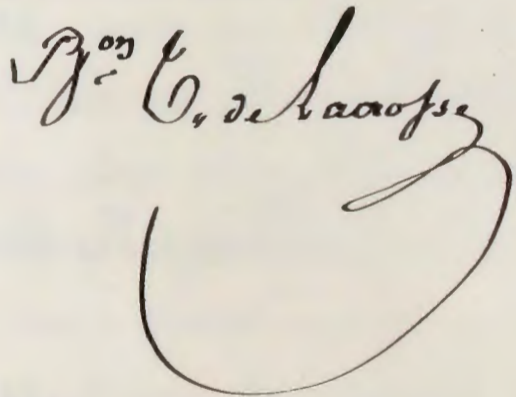 Bᵒⁿ T. de Lacroſse